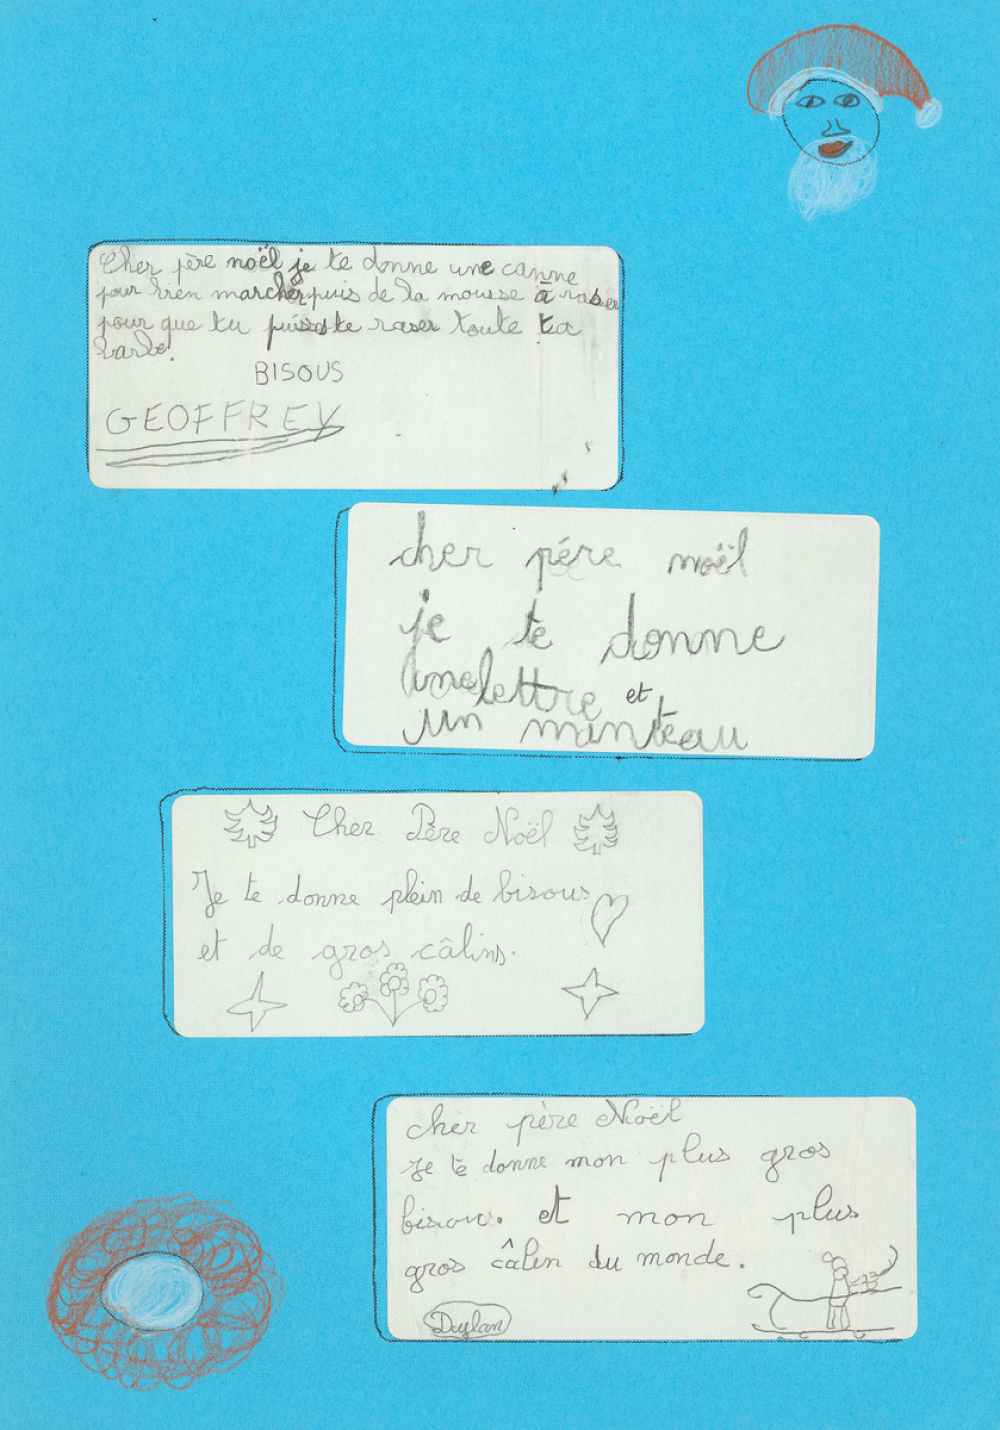 Cher père noël je te donne une canne
pour bien marcher puis de la mousse à raser
pour que tu puisste raser toute ta
barbe.
BISOUS
GEOFFREY
cher pére noël
je te donne
une lettre et
un manteau
Cher Père Noël
Je te donne plein de bisous
et de gros câlins.
cher père Noël
Je te donne mon plus gros
bisou. et mon plus
gros câlin du monde.
Dylan